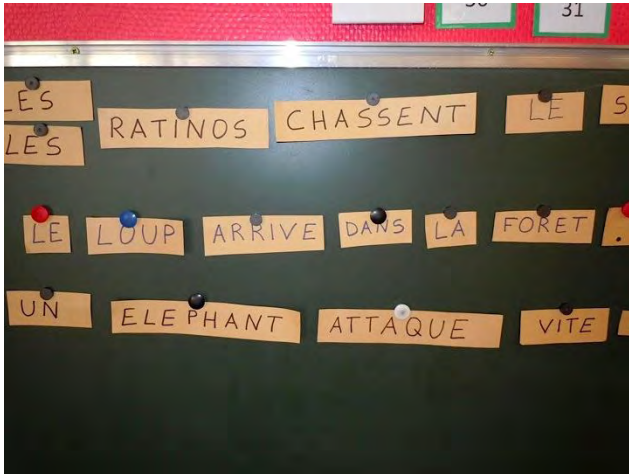 31
LES RATINOS CHASSENT LE
LES
LE LOUP ARRIVE DANS LA FORET .
UN ELEPHANT ATTAQUE VITE